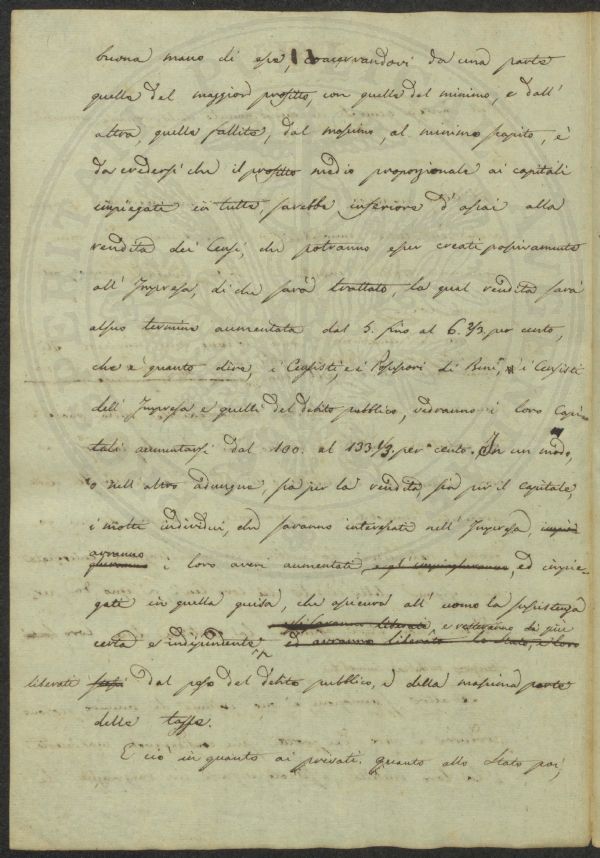 buona mano di esse, coacervandovi da una parte
quelle del maggior profitto, con quelle del minimo, e dall'
altra, quelle fallite, dal massimo, al minimo scapito, è
da credersi che il profitto medio proporzionale ai capitali
impiegati in tutte, sarebbe inferiore d'assai alla
rendita dei Censi, che potranno esser creati passivamente
all'Impresa, di che sarà trattato, la qual rendita sarà
alsuo termine aumentata dal 5. fino al 6. 2/3. per cento,
che è quanto dire, i Censisti, e i Possessori di Beni, i Censisti
dell'Impresa e quelli del debito pubblico, vedranno i loro Capi-
tali aumentarsi dal 100. al 133 1/3. per cento. In un modo,
o nell'altro adunque, sia per la rendita, sia pir il capitale,
i molti individui, che saranno interessati nell'Impresa,
avranno
i loro averi aumentati, ed impie-
gati in quella guisa, che assicura all'uomo la sussistenza
si saranno liberati, e resteranno di più
certa e indipendente ed avranno liberato lo Stato, e loro
liberati dal peso del debito pubblico, e della massima parte
delle tasse.
E ciò in quanto ai privati. quanto allo Stato poi,